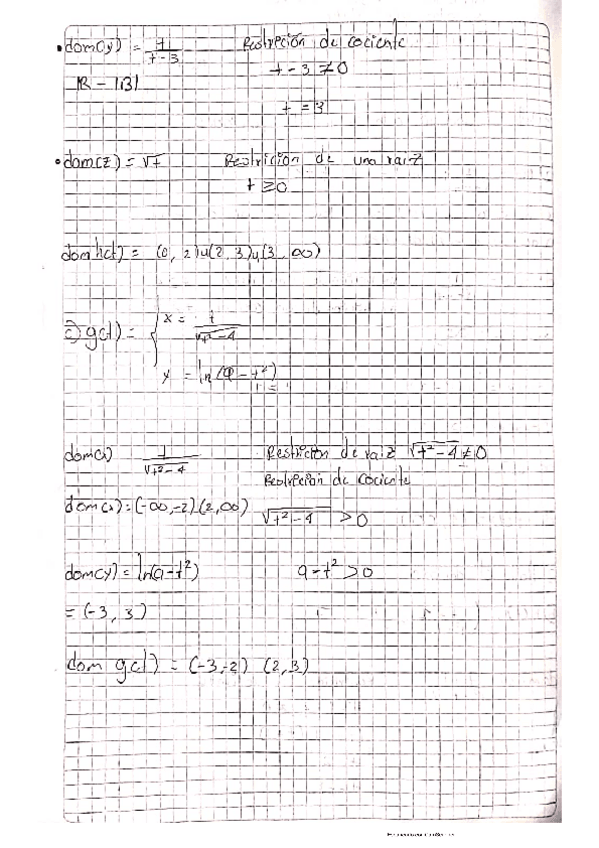 • dom(y) = t/(t-3) Restricción de cociente
t - 3 ≠ 0
R - {3}
t = 3
• dom(z) = √t Restricción de una raíz
t ≥ 0
dom h(t) = (0, 2)u(2, 3)u(3, ∞)
c) g(t) = { x = t/√(t²-4)
y = ln(9-t²)
dom(x) t/√(t²-4) Restricción de raíz √(t²-4) ≠ 0
Restricción de cociente
dom(x) = (-∞, -2) (2, ∞) √(t²-4) > 0
dom(y) = ln(9-t²) 9-t² > 0
= (-3, 3)
dom g(t) = (-3,-2) (2,3)